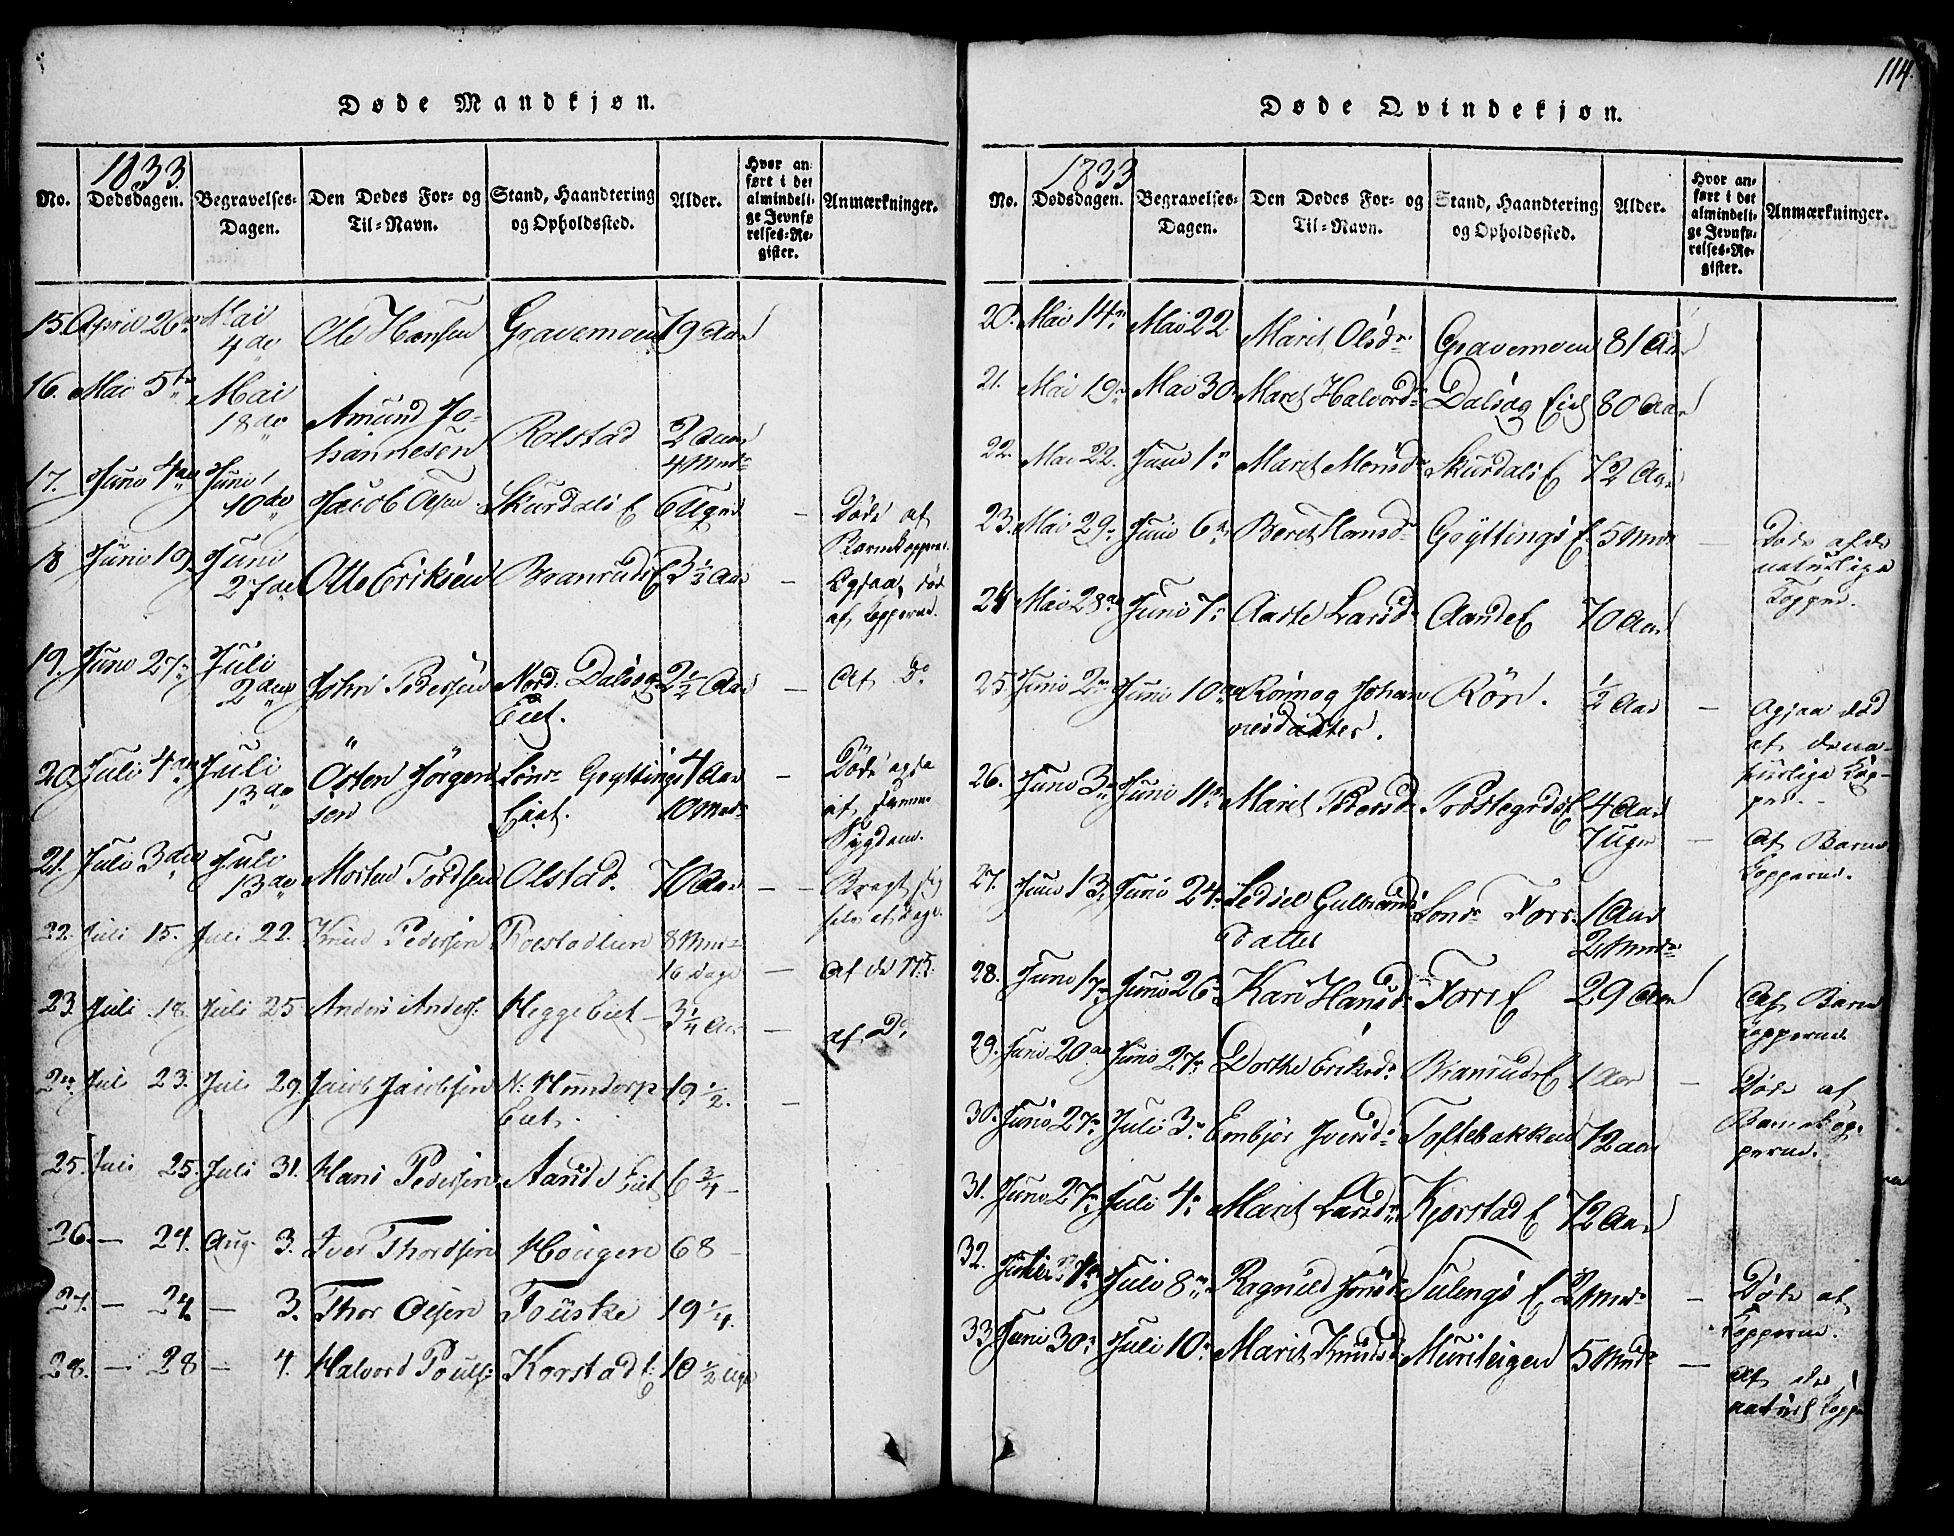 114.
Døde Mandkjøn.
1833.
No. Dødsdagen. Begravelses-Dagen. Den Dødes For- og Til-Navn. Stand, Haandtering og Opholdssted. Alder. Hvor anført i det almindelige Jevnførelses-Register. Anmærkninger.
15. April 26 Mai 4de Ole Hansen Gravemoen 19 Aar
16. Mai 5te Mai 18de Amund Johannesen Rolstad 2 Aar 4 Mndr
17. Juni 4de Juni 10de Jacob Olsen Skurdals E 6 Uger – Døde af Barnekopperne.
18 Juni 19 Juni 27de Otto Eriksen Branruds E 3½ Aar – Ogsaa død af Kopperne.
19. Juni 27 Juli 2den John Pedersen Nord: Dalsøg Eiet. 2½ Aar – Af Do
20. Juli 4de Juli 13de Østen Jørgensen Søndr Gryttings Eiet. 4 Aar 10 Mndr – Døde ogsa af samme Sygdom.
21. Juli 3den Juli 13de Morten Tordsen Olstad. 70 Aar – – Bragt sig selv af Dage.
22. Juli 15. Juli 22. Knud Pedersen 8 Mndr 16 Dage –
23. Juli 18. Juli 25 Anders Anders: Hegge Eiet – 3¼ Aar – af Do
24. Juli 23. Juli 29. Jacob Jacobsen N: Hundorp Eiet. 19½. –
25. Juli 25. Juli 31. Hans Pedersen Aande Eiet 6¾ –
26. – 24. Aug. 3. Iver Thordsen Hougen 68 –
27. – 24. – 3. Thor Olsen Fouske 19¼.
28. – 28 – 4. Halvord Pouls: Korstad E: 10½ Uge
Døde Qvindekjøn.
1833
No. Dødsdagen. Begravelses-Dagen. Den Dødes For- og Til-Navn. Stand, Haandtering og Opholdssted. Alder. Hvor anført i det almindelige Jevnførelses-Register. Anmærkninger.
20. Mai 14 Mai 22 Marit Olsdr Gravemoen 81 Aar
21. Mai 19 Mai 30 Maret Halvordr Dalsøg Eiet 80 Aar
22. Mai 22. Juni 1 Maret Monsdr Skurdals E 72 Aar
23. Mai 29 Juni 6 Beret Hansdr Gryttings E. 5 Mndr – Døde af de naturlige Kopper.
24 Mai 28 Juni 7 Aaste Larsd Aande E 70 Aar
25. Juni 2 Juni 10 Rønnog Johannesdatter. Røn. ½ Aar – Ogsaa død af de naturlige Kopper. –
26. Juni 3 Juni 11 Maret Pedersd Prøstegrds E 4 Aar 7 Uger – Af Barnekopperne.
27. Juni 13 Juni 24 Sedsel Gulbrandsdatter Søndr Forr. 1 Aar 2 Mndr
28. Juni 17 Juni 26 Kari Hansd: Forr E 29 Aar Af Barnekopperne.
29. Juni 20 Juni 27 Dorthe Eriksdr Branruds E 1 Aar – Døde af Barnekopperne.
30. Juni 27 Juli 3 Embjør Iversdr Toftebakken 72 Aar
31. Juni 27 Juli 4 Marit Larsdr Kjorstad E 72 Aar
32. Juli 8 Ragnild Jonsd: E 2 Mndr – Døde af Kopperne.
33. Juni 30 Juli 10 Marit Knudsd: 5 Mndr – Af de naturl Kopper